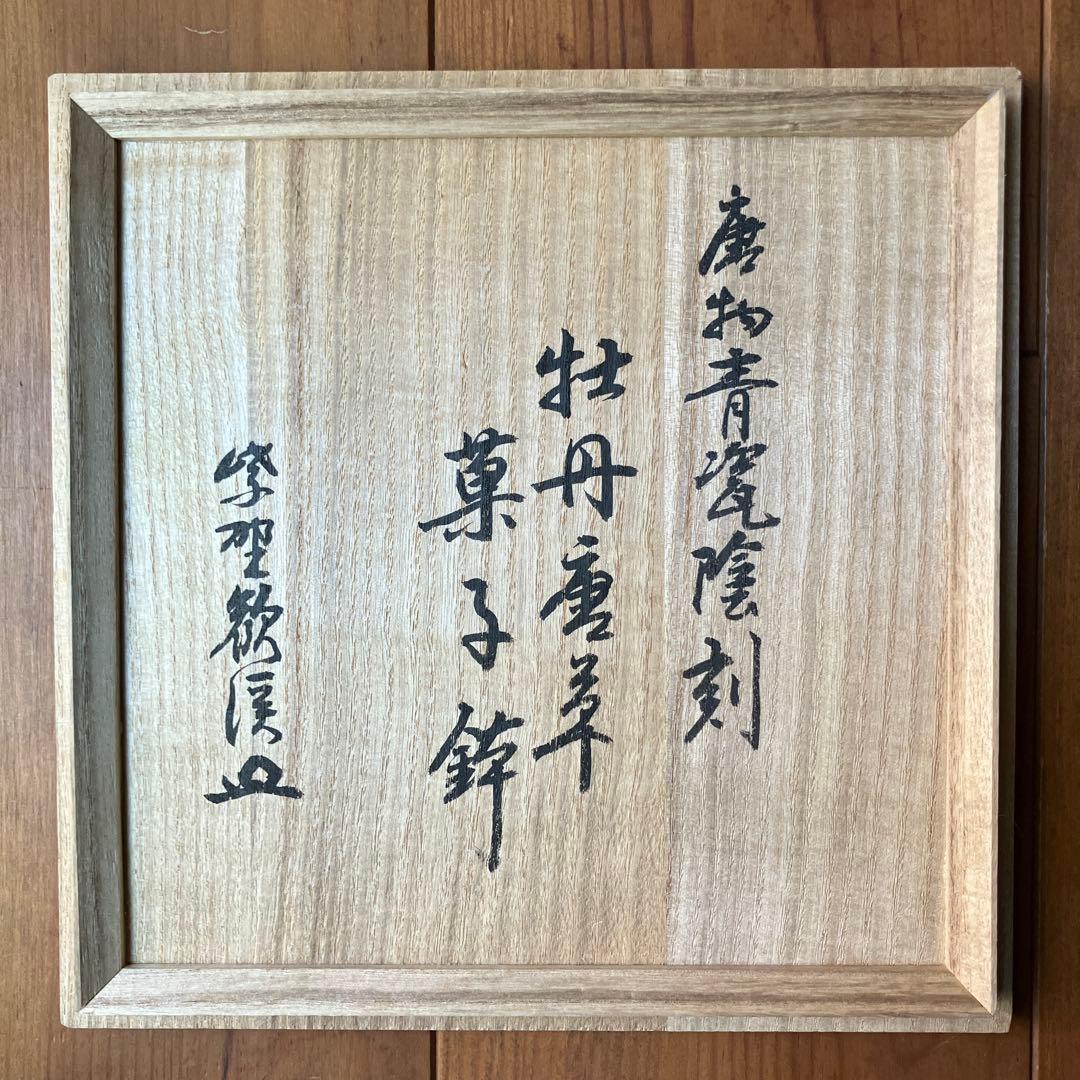 唐物青瓷陰刻
牡丹唐草
菓子鉢
紫野欲渓